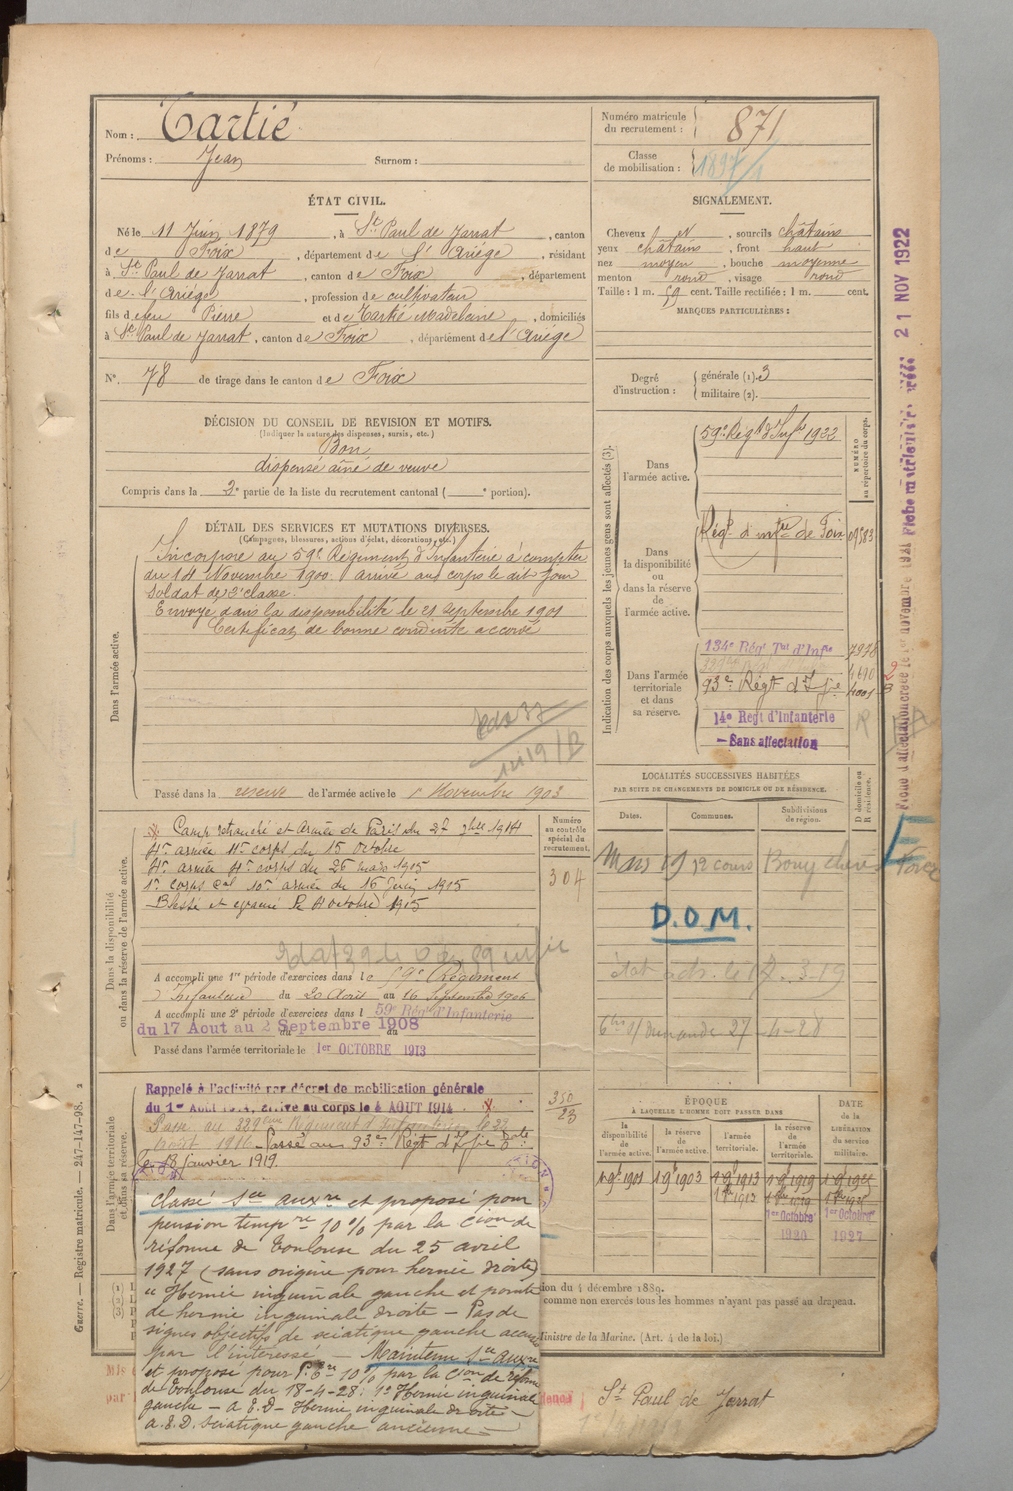 Nom : Tartié
Prénoms : Jean Surnom :
Numéro matricule du recrutement : 871
Classe de mobilisation : 1897/1
ÉTAT CIVIL.
Né le 11 Juin 1879, à St Paul de Jarrat, canton
de Foix, département de l'Ariége, résidant
à St Paul de Jarrat, canton de Foix, département
de l'Ariége, profession de cultivateur
fils de feu Pierre et de Tartié Madeleine, domiciliés
à St Paul de Jarrat, canton de Foix, département de l'Ariége
N° 78 de tirage dans le canton de Foix
SIGNALEMENT.
Cheveux et, sourcils châtains
yeux châtains, front haut
nez moyen, bouche moyenne
menton rond, visage rond
Taille : 1 m. 59 cent. Taille rectifiée : 1 m. cent.
MARQUES PARTICULIÈRES :
Degré d'instruction : générale (1). 3
militaire (2).
DÉCISION DU CONSEIL DE REVISION ET MOTIFS.
(Indiquer la nature des dispenses, sursis, etc.)
Bon
dispensé aîné de veuve
Compris dans la 2e partie de la liste du recrutement cantonal ( e portion).
DÉTAIL DES SERVICES ET MUTATIONS DIVERSES.
(Campagnes, blessures, actions d'éclat, décorations, etc.)
Dans l'armée active.
Incorporé au 59e Régiment d'Infanterie à compter
du 14 Novembre 1900. arrivé au corps le dit jour
Soldat de 2e classe.
Envoyé dans la disponibilité le 21 septembre 1901
Certificat de bonne conduite accordé
Passé dans la reserve de l'armée active le 1 Novembre 1903
Indication des corps auxquels les jeunes gens sont affectés (3).
NUMÉRO au répertoire du corps.
Dans l'armée active.
59e Regt d'Infie 1922
Dans la disponibilité ou dans la réserve de l'armée active.
Régt d'infrie de Foix 09583
Dans l'armée territoriale et dans sa réserve.
134e Rég' Tal d'Infie 7938
4690
93e Régt d'Infie 4001
14e Regt d'Infanterie
Sans affectation
21 NOV 1922
LOCALITÉS SUCCESSIVES HABITÉES
PAR SUITE DE CHANGEMENTS DE DOMICILE OU DE RÉSIDENCE.
Dates. Communes. Subdivisions de région. D domicile ou R résidence.
Mars 19
D.O.M.
Dans la disponibilité ou dans la réserve de l'armée active.
Numéro au contrôle spécial du recrutement.
304
Camp retranché et Armée de Paris du 27 7bre 1914
4e armée 11e corps du 15 octobre
4e armée 4e corps du 26 mars 1915
1er corps cal 10e armée du 16 Juin 1915
Blessé et évacué le 4 octobre 1915
A accompli une 1re période d'exercices dans le 59e Régiment
d'Infanterie du 20 Août au 16 Septembre 1906
A accompli une 2e période d'exercices dans l 59e Rég' d'Infanterie
du 17 Aout au 2 Septembre 1908
Passé dans l'armée territoriale le 1er OCTOBRE 1913
Dans l'armée territoriale et dans sa réserve.
Rappelé à l'activité par décret de mobilisation générale
du 1er Août 1914, arrivé au corps le 4 AOUT 1914
350
23
Passé au 329eme Régiment d'Infanterie le 22
Août 1916 Passé au 93e Régt d'Infie
le 18 janvier 1919.
ÉPOQUE
À LAQUELLE L'HOMME DOIT PASSER DANS
la disponibilité de l'armée active.
la réserve de l'armée active.
l'armée territoriale.
la réserve de l'armée territoriale.
DATE de la LIBÉRATION du service militaire.
1er Octobre 1920
1er Octobre 1927
Classé Sce auxre et proposé pour
pension tempre 10 % par la Cion de
réforme de Toulouse du 25 avril
1927 (sans origine pour hernie droite)
"Hernie inguinale gauche et pointe
de hernie inguinale droite - Pas de
signes objectifs de sciatique gauche accusée
par l'intéressé - Maintenu Sce auxre
et proposé pour P. 10 % par la Cion de réforme
de Toulouse du 18-4-28 : 1° Hernie inguinale
gauche - a E.D - Hernie inguinale droite -
a. E.D. sciatique gauche ancienne -
ion du 4 décembre 1889.
comme non exercés tous les hommes n'ayant pas passé au drapeau.
Ministre de la Marine. (Art. 4 de la loi.)
St Paul de Jarrat
Guerre. — Registre matricule. — 247-147-98. 2